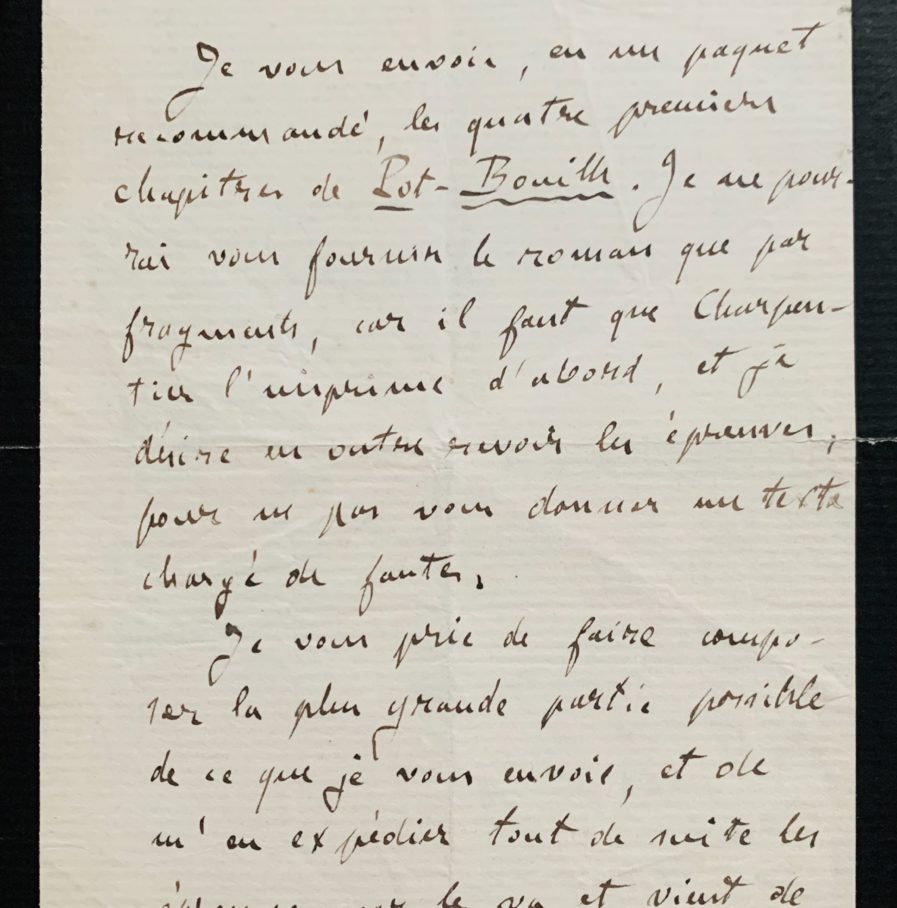 Je vous envoie, en un paquet
recommandé, les quatre premiers
chapitres de Pot-Bouille. Je ne pour-
rai vous fournir le roman que par
fragments, car il faut que Charpen-
tier l'imprime d'abord, et je
désire en outre revoir les épreuves,
pour ne pas vous donner un texte
chargé de fautes.
Je vous prie de faire compo-
ser la plus grande partie possible
de ce que je vous envoie, et de
m'en expédier tout de suite les
épreuves, car le va et vient de